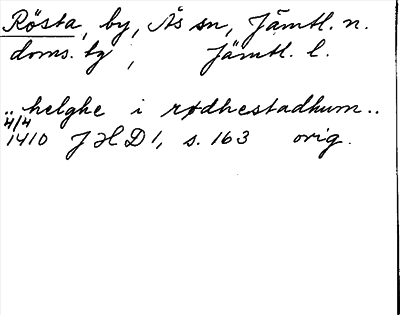 Rösta, by, Ås sn, Jämtl. n.
doms. tg, Jämtl. l.
.. helghe i rødhestadhum ..
4/4
1410 JHD 1, s. 163 orig.